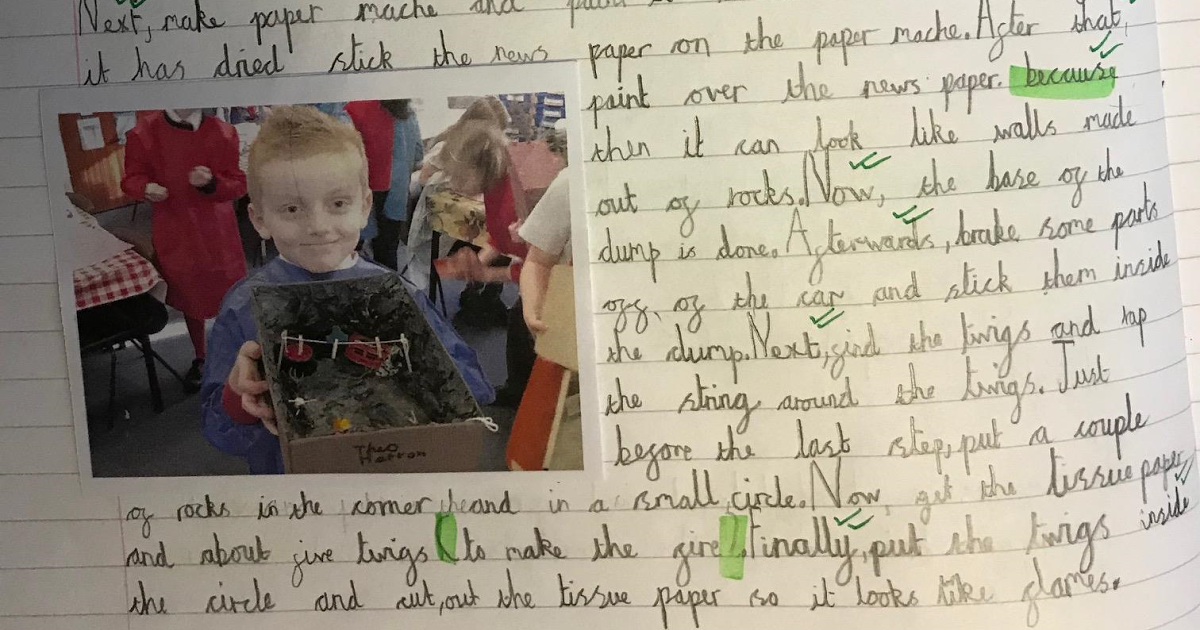 Next, make paper mache and
it has dried stick the news paper on the paper mache. After that,
paint over the news paper. because
then it can look like walls made
out of rocks. Now, the base of the
dump is done. Afterwards, brake some parts
off, of the car and stick them inside
the dump. Next, find the twigs and rap
the string around the twigs. Just
before the last step, put a couple
of rocks in the corner and in a small circle. Now, get the tissue paper
and about five twigs (to make the fire). Finally, put the twigs inside
the circle and cut, out the tissue paper so it looks like flames.
Theo